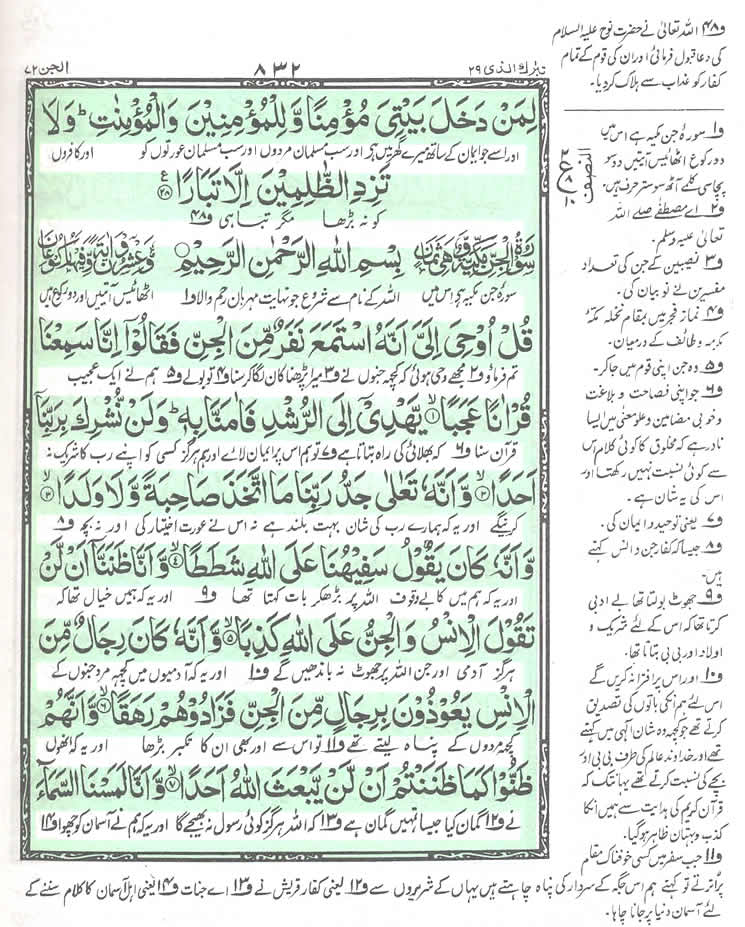 الجن ۷۲
۸۳۲
تبٰرك الذی ۲۹
لِمَنْ دَخَلَ بَيْتِيَ مُؤْمِنًا وَّلِلْمُؤْمِنِيْنَ وَالْمُؤْمِنٰتِ ؕ وَلَا
اور اسے جو ایمان کے ساتھ میرے گھر میں ہے اور سب مسلمان مردوں اور سب مسلمان عورتوں کو اور کافروں
تَزِدِ الظّٰلِمِيْنَ اِلَّا تَبَارًا ۲۸
کو نہ بڑھا مگر تباہی و۴۸
سُوْرَةُ الْجِنِّ مَكِّيَّةٌ وَّهِيَ ثَمَانٍ
بِسْمِ اللهِ الرَّحْمٰنِ الرَّحِيْمِ
وَّعِشْرُوْنَ اٰيَةً وَّفِيْهَا رُكُوْعَانِ
سورۂ جن مکیہ ہے اس میں اللہ کے نام سے شروع جو نہایت مہربان رحم والا و۱ اٹھائیس آیتیں اور دو رکوع ہیں
قُلْ اُوْحِيَ اِلَيَّ اَنَّهُ اسْتَمَعَ نَفَرٌ مِّنَ الْجِنِّ فَقَالُوْۤا اِنَّا سَمِعْنَا
تم فرماؤ و۲ مجھے وحی ہوئی کہ کچھ جنوں نے و۳ میرا پڑھنا کان لگا کر سنا و۴ تو بولے و۵ ہم نے ایک عجیب
قُرْاٰنًا عَجَبًا ۱ يَّهْدِيْۤ اِلَى الرُّشْدِ فَاٰمَنَّا بِهٖ ؕ وَلَنْ نُّشْرِكَ بِرَبِّنَاۤ
قرآن سنا و۶ کہ بھلائی کی راہ بتاتا ہے و۷ تو ہم اس پر ایمان لائے اور ہم ہرگز کسی کو اپنے رب کا شریک نہ
اَحَدًا ۲ وَّاَنَّهٗ تَعٰلٰى جَدُّ رَبِّنَا مَا اتَّخَذَ صَاحِبَةً وَّلَا وَلَدًا ۳
کرینگے اور یہ کہ ہمارے رب کی شان بہت بلند ہے نہ اس نے عورت اختیار کی اور نہ بچہ و۸
وَّاَنَّهٗ كَانَ يَقُوْلُ سَفِيْهُنَا عَلَى اللهِ شَطَطًا ۴ وَّاَنَّا ظَنَنَّاۤ اَنْ لَّنْ
اور یہ کہ ہم میں کا بے وقوف اللہ پر بڑھکر بات کہتا تھا و۹ اور یہ کہ ہمیں خیال تھا کہ
تَقُوْلَ الْاِنْسُ وَالْجِنُّ عَلَى اللهِ كَذِبًا ۵ وَّاَنَّهٗ كَانَ رِجَالٌ مِّنَ
ہرگز آدمی اور جن اللہ پر جھوٹ نہ باندھیں گے و۱۰ اور یہ کہ آدمیوں میں کچھ مرد جنوں کے
الْاِنْسِ يَعُوْذُوْنَ بِرِجَالٍ مِّنَ الْجِنِّ فَزَادُوْهُمْ رَهَقًا ۶ وَّاَنَّهُمْ
کچھ مردوں کے پناہ لیتے تھے و۱۱ تو اس سے اور بھی ان کا تکبر بڑھا اور یہ کہ انھوں
ظَنُّوْا كَمَا ظَنَنْتُمْ اَنْ لَّنْ يَّبْعَثَ اللهُ اَحَدًا ۷ وَّاَنَّا لَمَسْنَا السَّمَآءَ
نے و۱۲ گمان کیا جیسا تمہیں گمان ہے و۱۳ کہ اللہ ہرگز کوئی رسول نہ بھیجے گا اور یہ کہ ہم نے آسمان کو چھوا و۱۴
النصف
و۴۸ اللہ تعالیٰ نے حضرت نوح علیہ السلام
کی دعا قبول فرمائی اور ان کی قوم کے تمام
کفار کو عذاب سے ہلاک کردیا۔
و۱ سورۂ جن مکیہ ہے اس میں
دو رکوع اٹھائیس آیتیں دو سو
پچاسی کلمے آٹھ سو ستر حرف ہیں
و۲ اے مصطفٰے صلے اللہ
تعالیٰ علیہ وسلم۔
و۳ نصیبین کے جن کی تعداد
مفسرین نے نو بیان کی۔
و۴ نماز فجر میں بمقام نخلہ مکہ
مکرمہ و طائف کے درمیان۔
و۵ وہ جن اپنی قوم میں جاکر۔
و۶ جو اپنی فصاحت و بلاغت
و خوبی مضامین و علو معنی میں ایسا
نادر ہے کہ مخلوق کا کوئی کلام اس
سے کوئی نسبت نہیں رکھتا اور
اس کی یہ شان ہے۔
و۷ یعنی توحید و ایمان کی۔
و۸ جیسا کہ کفار جن و انس کہتے
ہیں۔
و۹ جھوٹ بولتا تھا بے ادبی
کرتا تھا کہ اس کے لئے شریک و
اولاد اور بی بی بتاتا تھا۔
و۱۰ اور اس پر افترا نہ کریں گے
اس لئے ہم انکی باتوں کی تصدیق
کرتے تھے جو کچھ وہ شان الٰہی میں کہتے
تھے اور خداوند عالم کی طرف بی بی اور
بچے کی نسبت کرتے تھے یہانتک کہ
قرآن کریم کی ہدایت سے ہمیں انکا
کذب و بہتان ظاہر ہوگیا۔
و۱۱ جب سفر میں کسی خوفناک مقام
پر اترتے تو کہتے ہم اس جگہ کے سردار کی پناہ چاہتے ہیں یہاں کے شریروں سے و۱۲ یعنی کفار قریش نے و۱۳ اے جنات و۱۴ یعنی اہل آسمان کا کلام سننے کے
لئے آسمان دنیا پر جانا چاہا۔